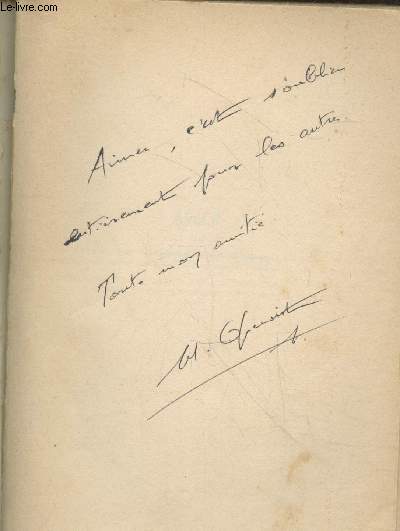 Le-livre.com
Aimer, c'est s'oublier
entièrement pour les autres.
Toute mon amitié
M. Quoist